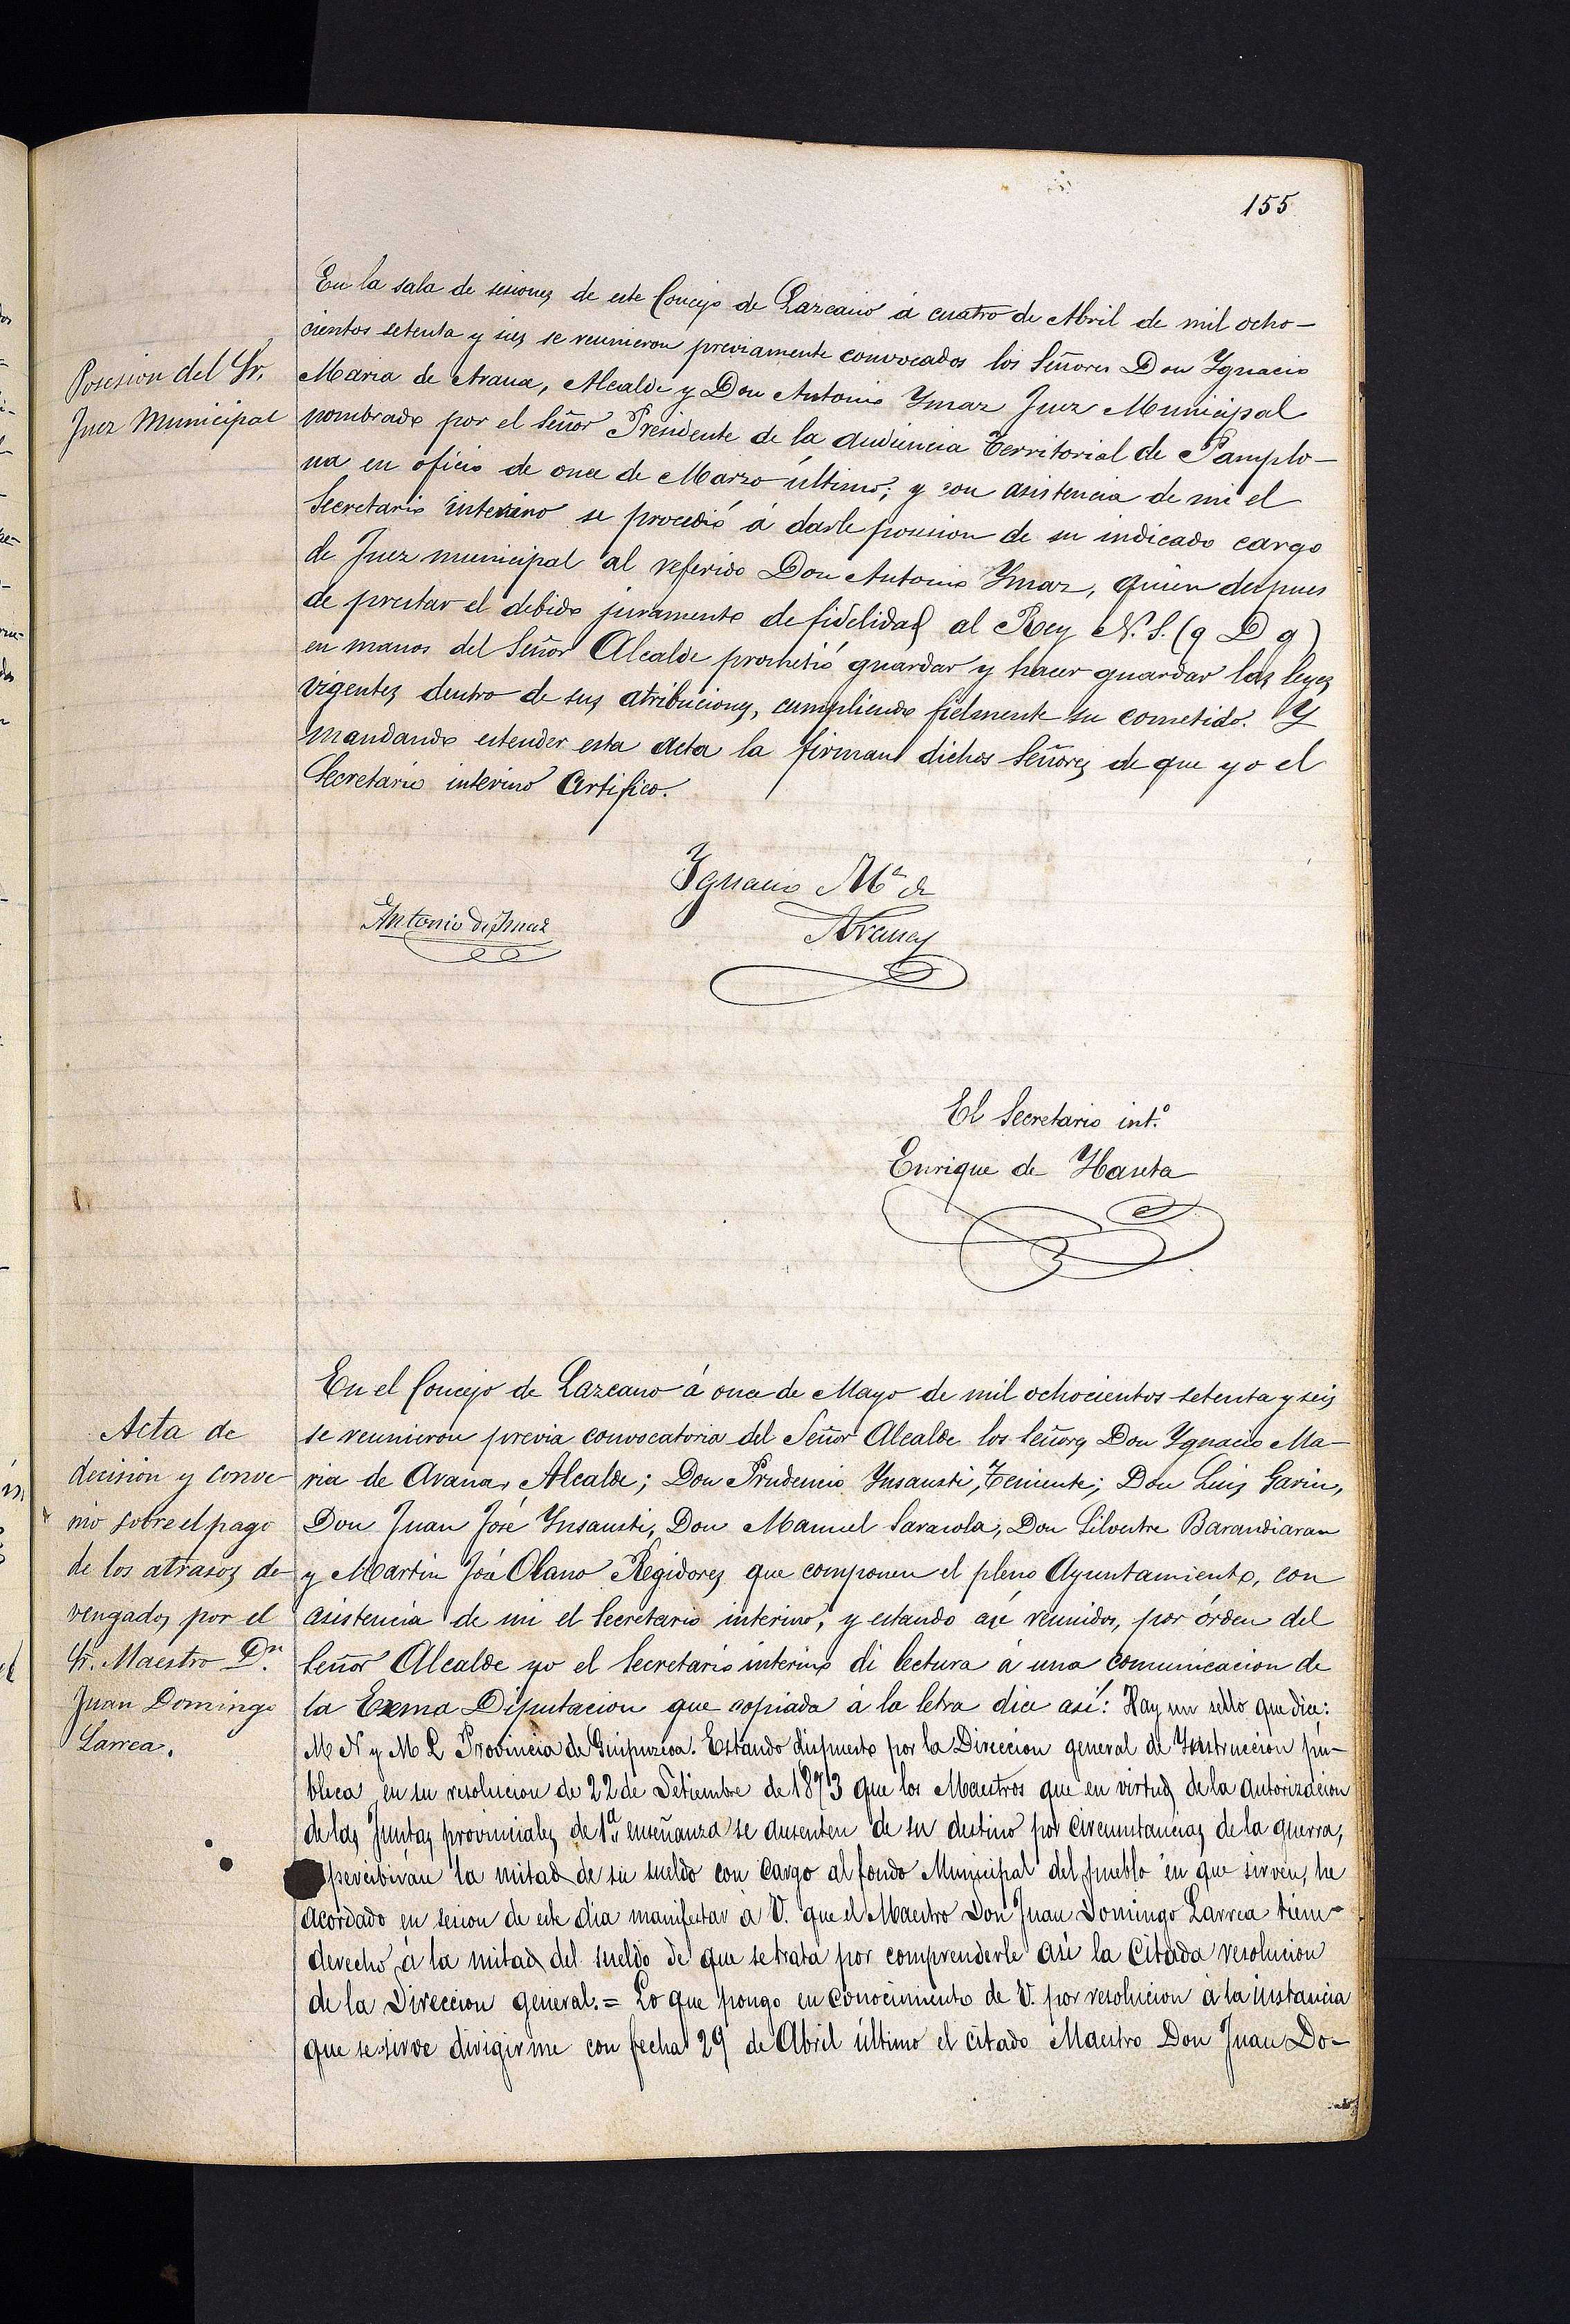 155
Posesion del Sr.
Juez Municipal
En la sala de sesiones de este Concejo de Lazcano á cuatro de Abril de mil ocho-
cientos setenta y seis se reunieron previamente convocados los Señores Don Ygnacio
Maria de Arana, Alcalde y Don Antonio Ymaz Juez Municipal
nombrado por el Señor Presidente de la audiencia Territorial de Pamplo-
na en oficio de once de Marzo último; y con asistencia de mi el
Secretario interino se procedió á darle posesion de su indicado cargo
de Juez municipal al referido Don Antonio Ymaz, quien despues
de prestar el debido juramento de fidelidad al Rey N. S. (q D g)
en manos del Señor Alcalde prometió guardar y hacer guardar las leyes
vigentes dentro de sus atribuciones, cumpliendo fielmente su cometido. Y
mandando estender esta acta la firman dichos Señores de que yo el
Secretario interino Certifico.
Ygnacio Mª de
Arana
Antonio de Ymaz
El Secretario int.º
Enrique de
Acta de
decision y conve
nio sobre el pago
de los atrasos de
vengados por el
Sr. Maestro Dn.
Juan Domingo
Larrea.
En el Concejo de Lazcano á once de Mayo de mil ochocientos setenta y seis
se reunieron previa convocatoria del Señor Alcalde los Señores Don Ygnacio Ma-
ria de Arana, Alcalde; Don Prudencio Ynsausti, Teniente; Don Luis Garin,
Don Juan José Ynsausti, Don Manuel Sarasola, Don Silvestre Barandiaran
y Martin José Olano Regidores que componen el pleno Ayuntamiento, con
asistencia de mi el Secretario interino, y estando asi reunidos, por órden del
Señor Alcalde yo el Secretario interino di lectura á una comunicacion de
la Exma Diputacion que copiada á la letra dice asi: Hay un sello que dice:
M N y M L Provincia de Guipuzcoa. Estando dispuesto por la Direccion general de Ynstruccion pú-
blica en su resolucion de 22 de Setiembre de 1873 que los Maestros que en virtud de la autorizacion
de las Juntas provinciales de 1ª enseñanza se ausenten de su destino por circunstancias de la guerra,
percibirán la mitad de su sueldo con cargo al fondo Municipal del pueblo en que sirven, he
acordado en sesion de este dia manifestar á V. que el Maestro Don Juan Domingo Larrea tiene
derecho á la mitad del sueldo de que se trata por comprenderle asi la citada resolucion
de la Direccion general. = Lo que pongo en conocimiento de V. por resolucion á la instancia
que se sirve dirigirme con fecha 29 de Abril último el citado Maestro Don Juan Do-